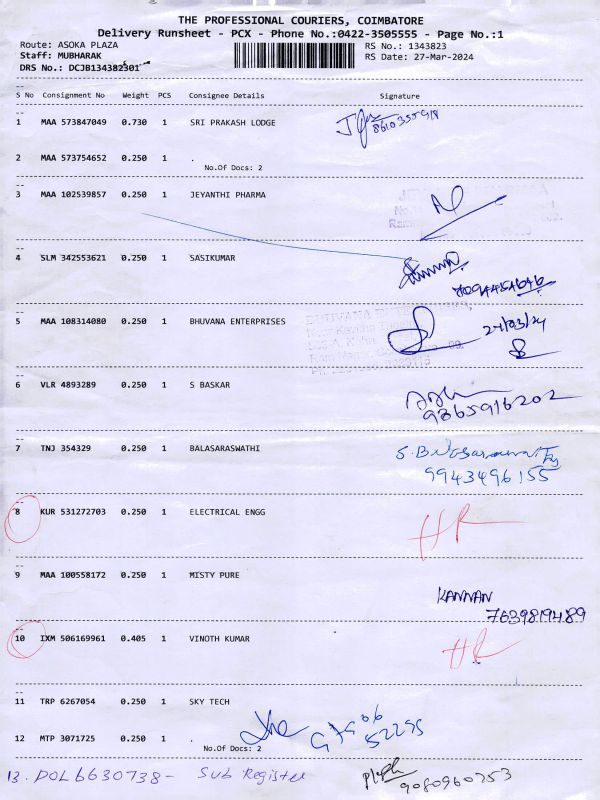 THE PROFESSIONAL COURIERS, COIMBATORE
Delivery Runsheet - PCX - Phone No.:0422-3505555 - Page No.:1
Route: ASOKA PLAZA RS No.: 1343823
Staff: MUBHARAK RS Date: 27-Mar-2024
DRS No.: DCJB134382301
S No Consignment No Weight PCS Consignee Details Signature
1 MAA 573847049 0.730 1 SRI PRAKASH LODGE
2 MAA 573754652 0.250 1 .
No.Of Docs: 2
3 MAA 102539857 0.250 1 JEYANTHI PHARMA
4 SLM 342553621 0.250 1 SASIKUMAR
5 MAA 108314080 0.250 1 BHUVANA ENTERPRISES 27/03/24
6 VLR 4893289 0.250 1 S BASKAR
9865916202
7 TNJ 354329 0.250 1 BALASARASWATHI
9943496155
8 KUR 531272703 0.250 1 ELECTRICAL ENGG HR
9 MAA 100558172 0.250 1 MISTY PURE
KANNAN
7639819489
10 IXM 506169961 0.405 1 VINOTH KUMAR HR
11 TRP 6267054 0.250 1 SKY TECH
12 MTP 3071725 0.250 1 .
No.Of Docs: 2
13. POL 6630738 - Sub Register
9080960753